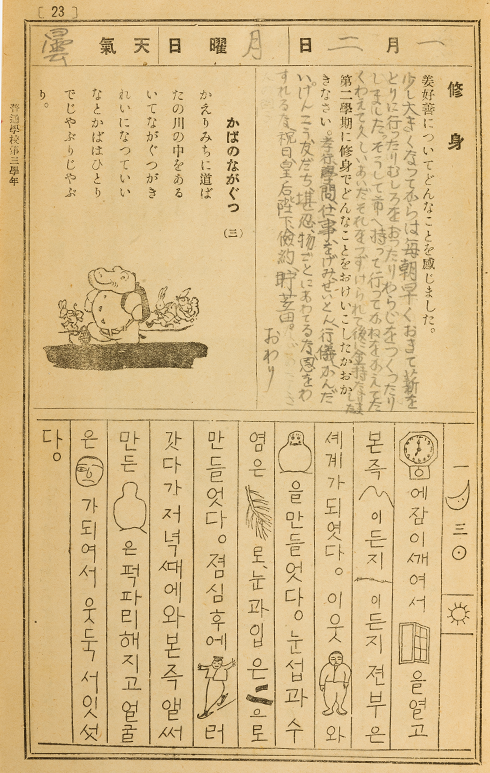 〔23〕
一月二日 月曜日 天氣 曇
修身
姜好善についてどんなことを感じました。
少し大きくなってからは毎朝早くおきて薪を
とりに行ったりむしろをおったりわらじをつくったり
しました。そうして市へ持って行ってかねをかえてた
くわえて久しいあいだそれをつずけられて後に金持
第一學期に修身でどんなことをおけいこしたかおか
きなさい。孝行學問仕事をはげみせいとん行儀かんだ
いけんこう友だち、堪忍物ごとにあわてるな恩をわ
すれるな祝日皇后陛下儉約、貯蓄。
おわり
かばのながぐつ (三)
かえりみちに道ば
たの川の中をある
いてながぐつがき
れいになつていい
なとかばはひとり
でじやぶりじやぶ
り。
普通學校第三學年
一 三
에잠이깨여서 을열고
본즉 이든지 이든지젼부은
셰계가되엿다。이웃 와
을만들엇다。눈섭과수
염은 로、눈과입은 으로
만들엇다。졈심후에 러
갓다가저녁때에와본즉앨써
만든 은퍽파리해지고얼굴
은 가되여서웃둑서잇섯
다。